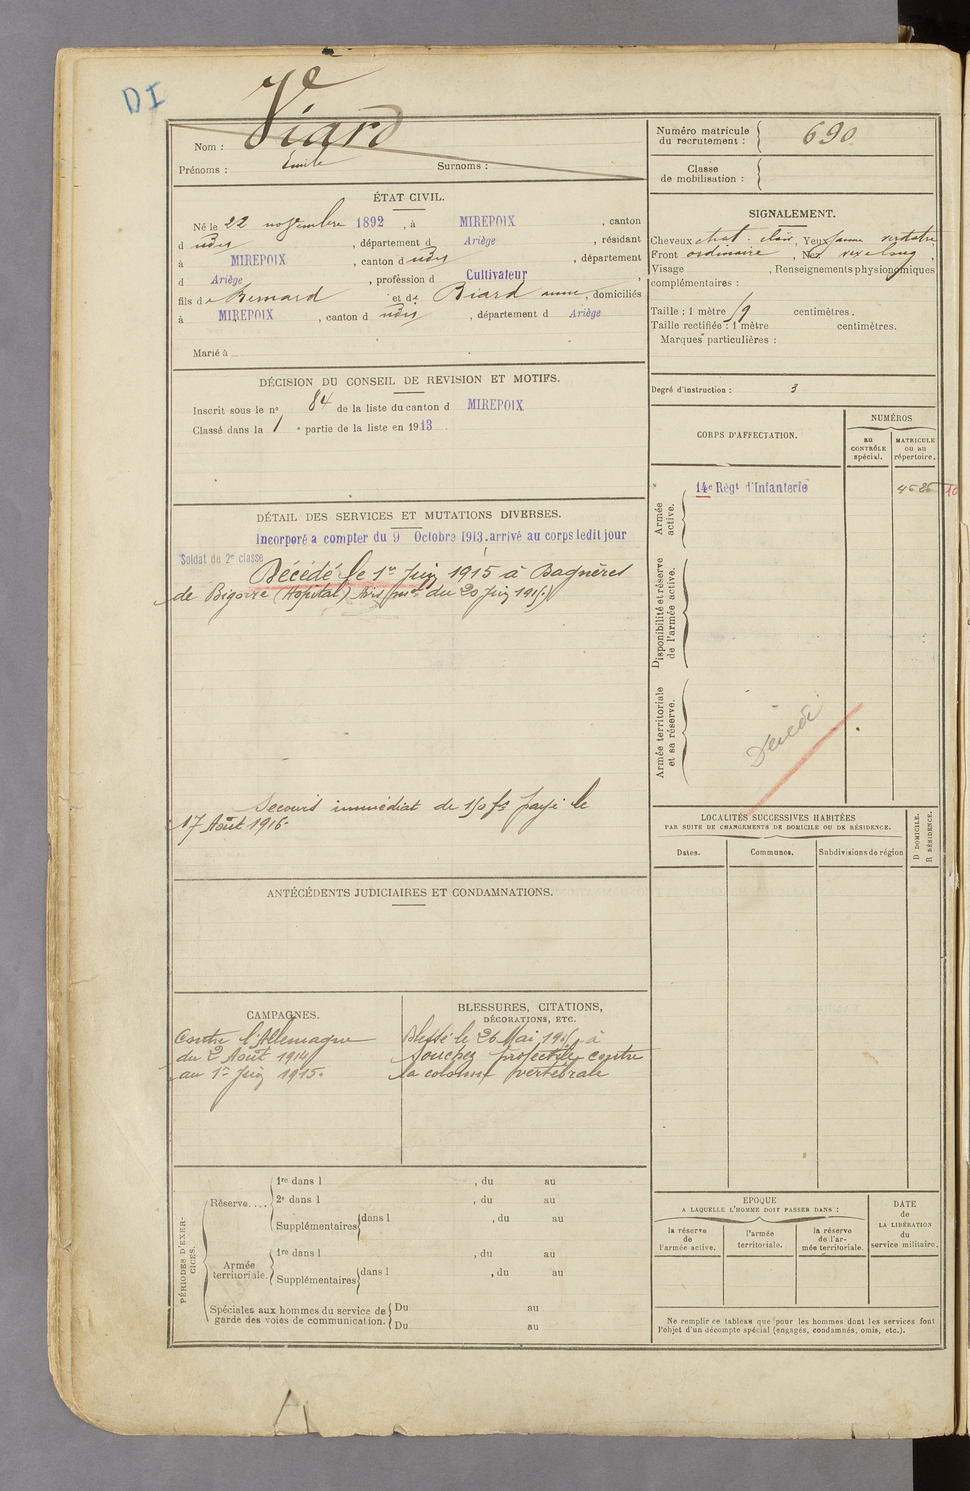 DI
Nom : Viard
Prénoms : Emile Surnoms :
Numéro matricule
du recrutement : 690
Classe
de mobilisation :
ÉTAT CIVIL.
Né le 22 novembre 1892, à MIREPOIX, canton
d udis, département d Ariège, résidant
à MIREPOIX, canton d udis, département
d Ariège, profession d Cultivateur,
fils de Bernard et de Biard anne, domiciliés
à MIREPOIX, canton d udis, département d Ariège
Marié à
SIGNALEMENT.
Cheveux chat. clair, Yeux jaune verdatre
Front ordinaire, Nez
Visage , Renseignements physionomiques
complémentaires :
Taille : 1 mètre centimètres.
Taille rectifiée : 1 mètre centimètres.
Marques particulières :
Degré d'instruction : 3
DÉCISION DU CONSEIL DE REVISION ET MOTIFS.
Inscrit sous le n° 84 de la liste du canton d MIREPOIX
Classé dans la 1 e partie de la liste en 1913
CORPS D'AFFECTATION.
NUMÉROS
au
CONTRÔLE
spécial.
MATRICULE
ou au
répertoire.
Armée
active.
14e Régt d'Infanterie
10
Disponibilité et réserve
de l'armée active.
Armée territoriale
et sa réserve.
Décédé
DÉTAIL DES SERVICES ET MUTATIONS DIVERSES.
Incorporé à compter du 9 Octobre 1913. arrivé au corps ledit jour
Soldat de 2e classe
Décédé le 1er Juin 1915 à Bagnères
de Bigorre (Hopital) Avis mel du 20 Juin 1915.
Secours immédiat de 150 fs payé le
17 Août 1916.
LOCALITÉS SUCCESSIVES HABITÉES
PAR SUITE DE CHANGEMENTS DE DOMICILE OU DE RÉSIDENCE.
Dates.
Communes.
Subdivisions de région
D DOMICILE.
R RÉSIDENCE.
ANTÉCÉDENTS JUDICIAIRES ET CONDAMNATIONS.
CAMPAGNES.
Contre l'Allemagne
du 2 Août 1914
au 1er Juin 1915.
BLESSURES, CITATIONS,
DÉCORATIONS, ETC.
Blessé le 26 Mai 1915 à
Souchez projectile contre
la colonne vertébrale
PÉRIODES D'EXER-
CICES.
Réserve....
1re dans l , du au
2e dans l , du au
Supplémentaires dans l , du au
Armée
territoriale.
1re dans l , du au
Supplémentaires dans l , du au
Spéciales aux hommes du service de
garde des voies de communication.
Du au
Du au
EPOQUE
A LAQUELLE L'HOMME DOIT PASSER DANS :
la réserve
de
l'armée active.
l'armée
territoriale.
la réserve
de l'ar-
mée territoriale.
DATE
de
LA LIBÉRATION
du
service militaire.
Ne remplir ce tableau que pour les hommes dont les services font
l'objet d'un décompte spécial (engagés, condamnés, omis, etc.).